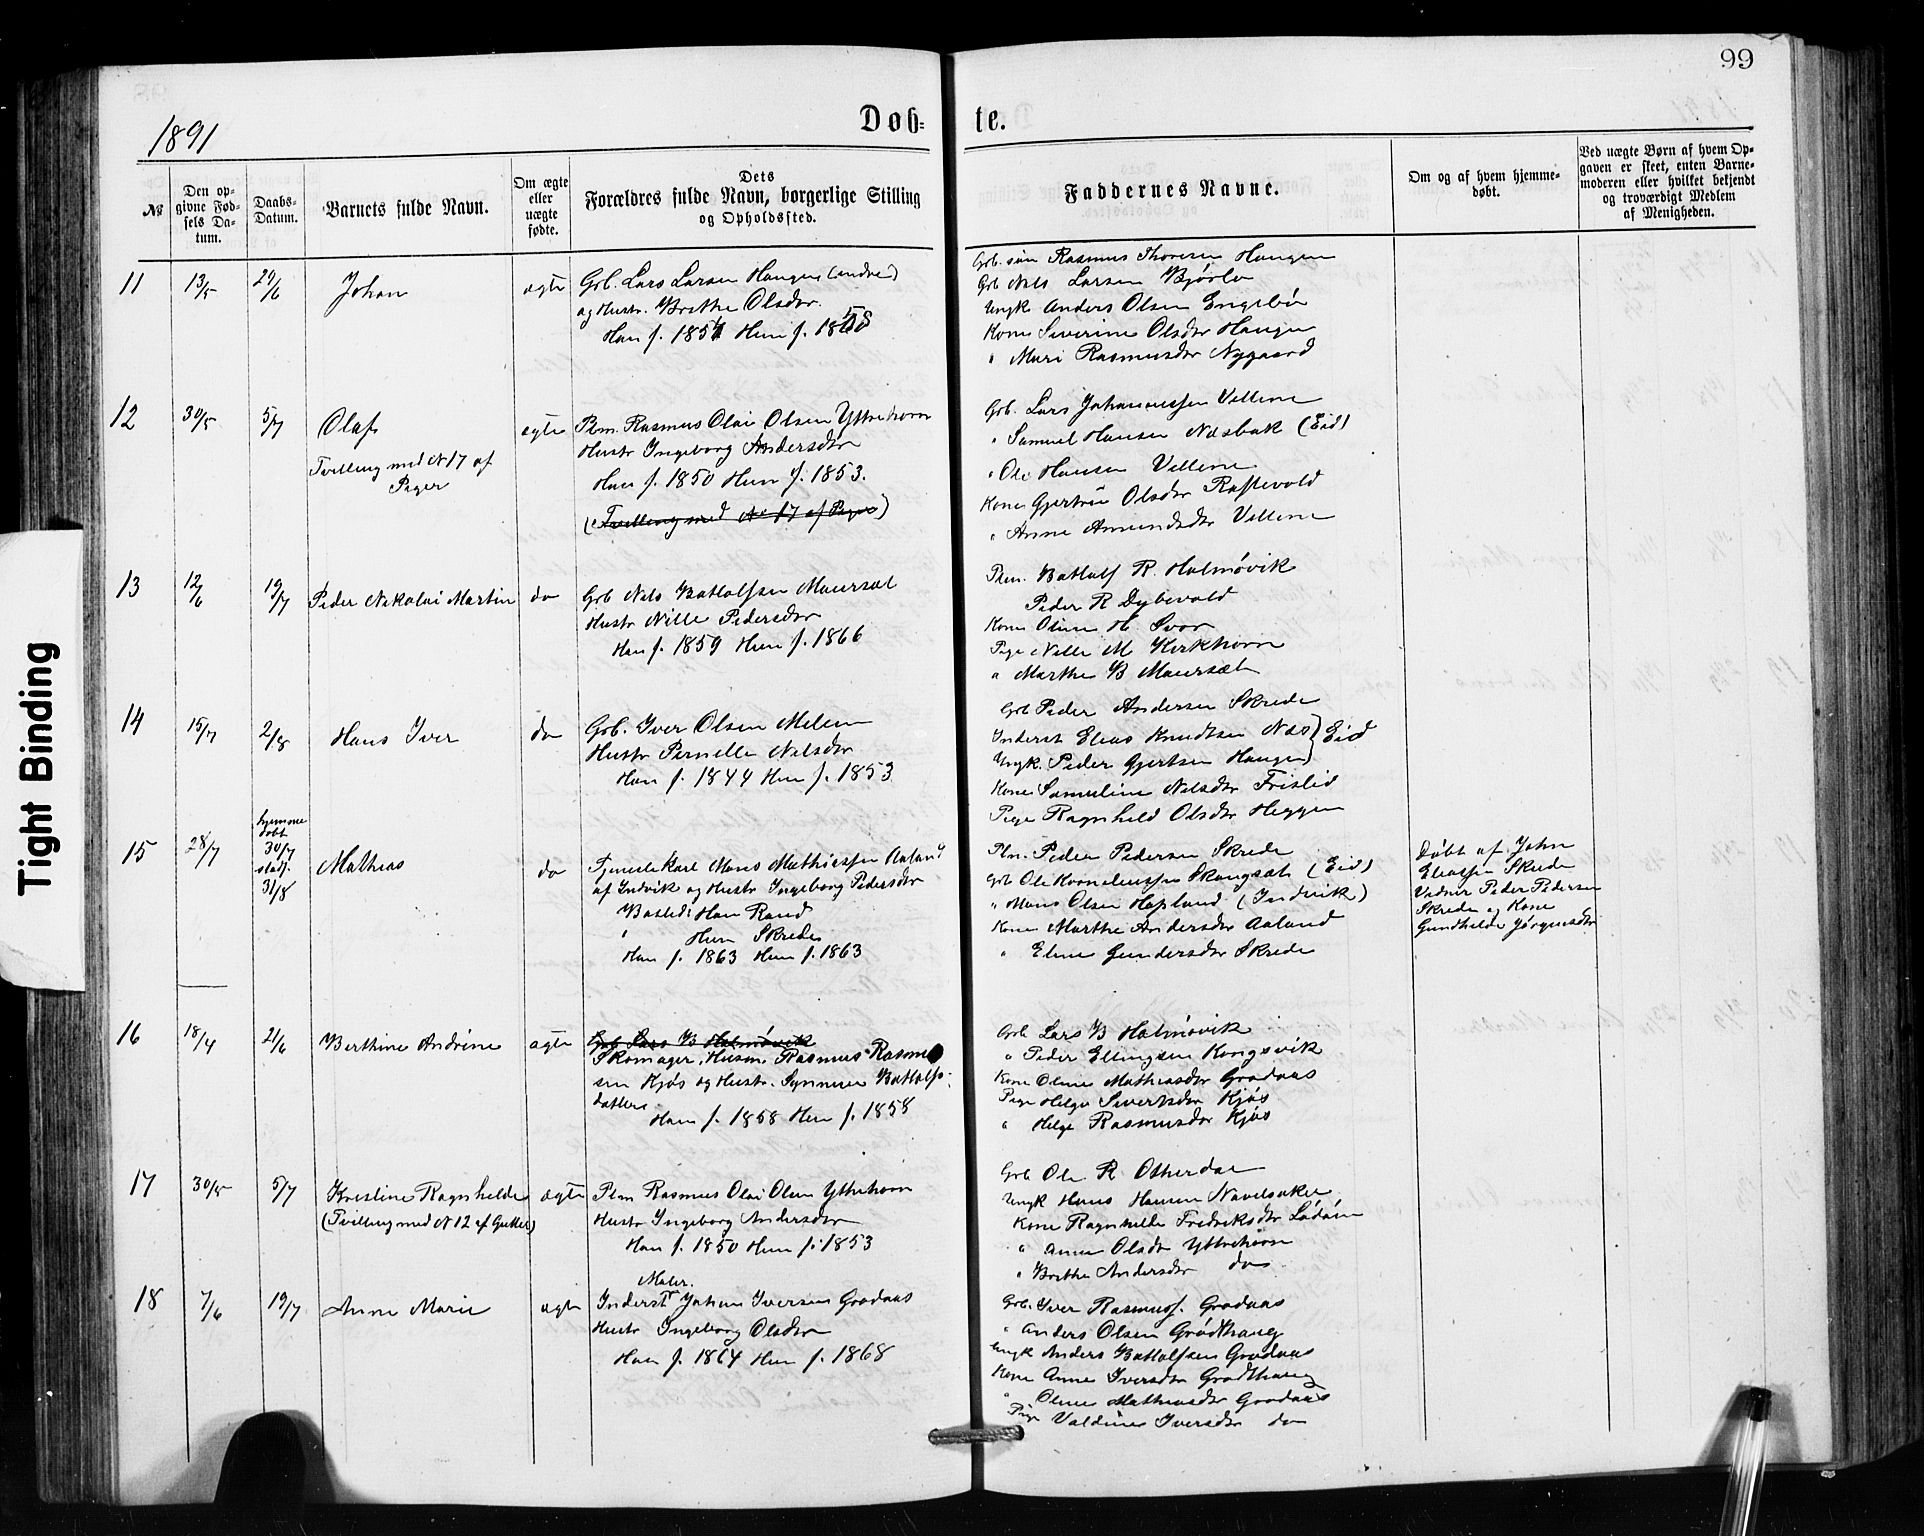 99
1891
Døb- te.
№
Den op-
givne Fød-
sels Da-
tum.
Daabs-
Datum.
Barnets fulde Navn.
Om ægte
eller
uægte
fødte.
Dets
Forældres fulde Navn, borgerlige Stilling
og Opholdssted.
Faddernes Navne.
Om og af hvem hjemme-
døbt.
Ved uægte Børn af hvem Op-
gaven er skeet, enten Barne-
moderen eller hvilket bekjendt
og troværdigt Medlem
af Menigheden.
11 13/5 29/6 Johan ægte
Grb. Lars Larsen Haugen (andre)
og Hustr. Brithe Olsdtr.
Han f. 1851 Hun f. 1858
Grb. søn Rasmus Thoresen Haugen
Grb Nils Larsen Bjørlo
Ungk Anders Olsen Engebø
Kone Severine Olsdtr Haugen
" Mari Rasmusdtr Nygaard
12 30/5 5/7 Olaf ægte
Tvilling med N 17 af
Piger
Plm. Rasmus Olai Olsen Yttrehorn
Hustr Ingeborg Andersdtr
Han f. 1850 Hun f. 1853.
(Tvilling med No 17 af Piger)
Grb. Lars Johannessen Vellene
" Samuel Hansen Næsbak (Eid)
" Ole Hansen Vellene
Kone Gjertrue Olsdtr Raftevold
" Anne Amundsdtr Vellene
13 12/6 19/7 Peder Nikolai Martin do
Grb Nils Bottolfsen Maursæt
Hustr Nille Pedersdtr
Han f. 1859 Hun f. 1866
Plm. Bottolf R. Holmøvik
Peder R Dybevold
Kone Oline H. Svor
Pige Nille M Kirkhorn
" Marthe B Maursæt
14 15/7 2/8 Hans Iver do
Grb. Iver Olsen Melem
Hustr Pernelle Nilsdtr
Han f. 1844 Hun f. 1853
Grb Peder Andersen Skrede
Inderst Elias Knudtsen Næs } Eid
Ungk. Peder Gjertsen Haugen
Kone Samuline Nilsdtr Frislid
Pige Ragnhild Olsdtr Heggen
15 28/7
hjemme
døbt
30/7
stadf.
31/8
Mathias do
Tjenestekarl Mons Mathiassen Aaland
af Indvik og Hustr Ingeborg Pedersdtr
Bosted: Han Rand
" Hun Skrede
Han f. 1863 Hun f. 1863
Plm. Peder Pedersen Skrede
Grb Ole Korneliussen Skaugsæt (Eid)
" Mons Olsen Hopland (Indvik)
Kone Marthe Andersdtr Aaland
" Eline Gundersdtr Skrede
Døbt af John
Eliassen Skrede
Vidner Peder Pedersen
Skrede og Kone
Gundhilde Jørgensdtr
16 18/4 21/6 Berthine Andrine ægte
Grb Lars B Holmøvik
Skomager, Husm. Rasmus Rasmus
sen Kjøs og Hustr. Synneve Bottolfs-
datter
Han f. 1858 Hun f. 1858
Grb Lars B Holmøvik
" Peder Ellingsen Kongsvik
Kone Oline Mathiasdtr Grodaas
Pige Helge Sivertsdtr Kjøs
" Helge Rasmusdtr Kjøs
17 30/5 5/7 Kristine Ragnhilde ægte
(Tvilling med N 12 af Gutter)
Plm Rasmus Olai Olsen Yttrehorn
Hustr Ingeborg Andersdtr
Han f. 1850 Hun f. 1853
Grb Ole R Otterdal
Ungk Hans Hansen Navelsaker
Kone Ragnhilde Fredriksdtr Lødøen
" Anne Olsdtr Yttrehorn
" Brithe Andersdtr do
18 7/6 19/7 Anne Marie ægte
Maler.
Inderst Johan Iversen Grodaas
Hustr Ingeborg Olsdtr
Han f. 1864 Hun f. 1868
Grb. Iver Rasmuss. Grodaas
" Anders Olsen Grodthaug
Ungk Anders Bottolfsen Grodaas
Kone Anne Iversdtr Grodthaug
" Oline Mathiasdtr Grodaas
Pige Valdine Iversdtr do
Tight Binding